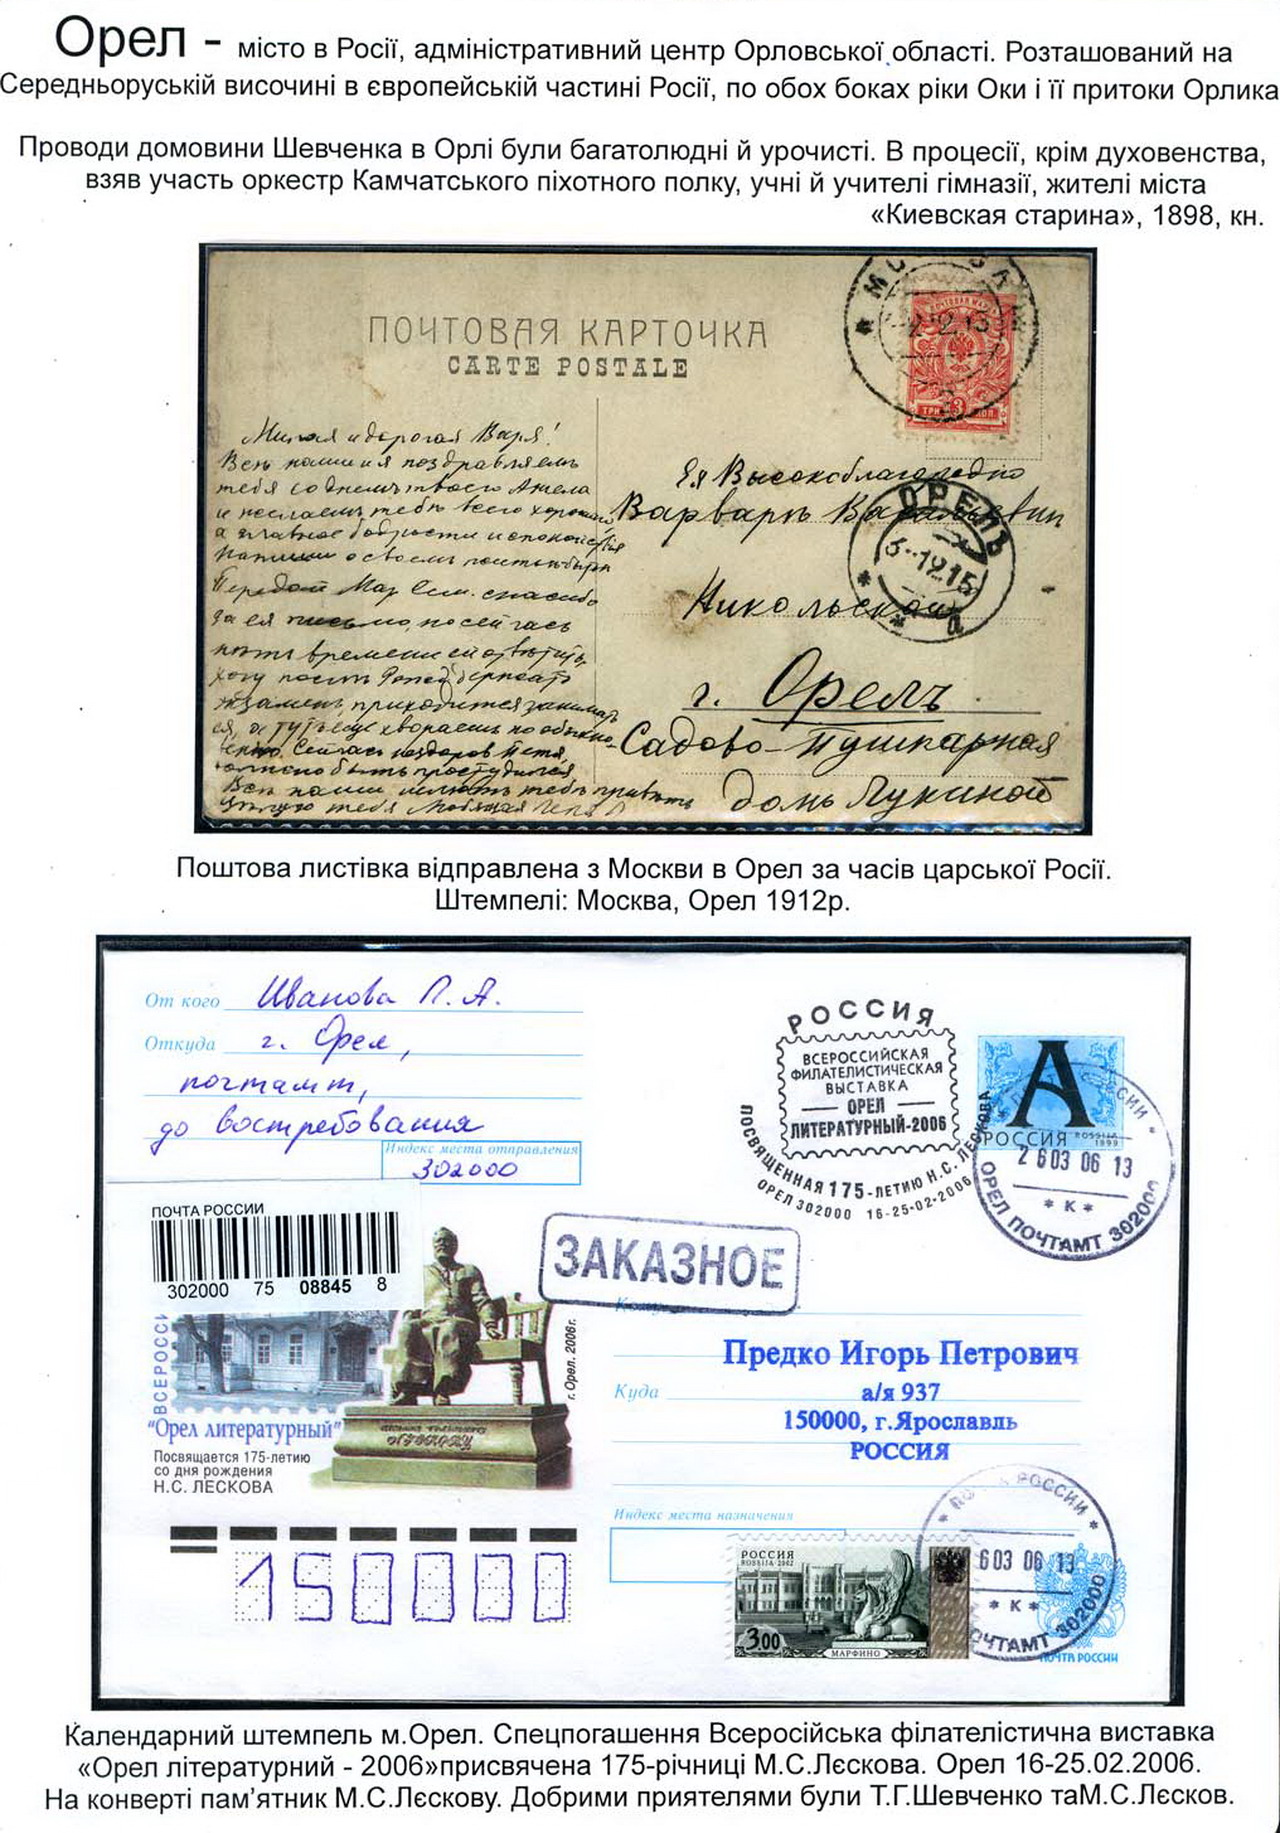 Орел - місто в Росії, адміністративний центр Орловської області. Розташований на
Середньоруській височині в європейській частині Росії, по обох боках ріки Оки і її притоки Орлика
Проводи домовини Шевченка в Орлі були багатолюдні й урочисті. В процесії, крім духовенства,
взяв участь оркестр Камчатського піхотного полку, учні й учителі гімназії, жителі міста
«Киевская старина», 1898, кн.
ПОЧТОВАЯ КАРТОЧКА
CARTE POSTALE
МОСКВА
ПОЧТОВАЯ МАРКА
ТРИ 3 КОП.
Милая и дорогая Варя!
Все наши и я поздравляем
тебя со днем твоего Ангела
и желаем тебе всего хорошего
а главное бодрости и спокойствия
Напиши о своем
Передай Мар. Сем. спасибо
за ея письмо, но сейчас
нет времени ей ответить,
экзамен, приходится занимать
ся, а тут еще хвораем по обыкно-
вению. Сейчас нездоров Петя,
должно быть простудился
Все наши
целую тебя Любящая
Ея Высокоблагородию
Варваре Васильевне
Никольской
г. Орелъ
Садово-Пушкарная
домъ Лукиной
ОРЕЛЪ
6-12 15
а
Поштова листівка відправлена з Москви в Орел за часів царської Росії.
Штемпелі: Москва, Орел 1912р.
От кого Иванова Л. А.
Откуда г. Орел,
почтамт,
до востребования
Индекс места отправления
302000
РОССИЯ
ВСЕРОССИЙСКАЯ
ФИЛАТЕЛИСТИЧЕСКАЯ
ВЫСТАВКА
ОРЕЛ
ЛИТЕРАТУРНЫЙ-2006
ПОСВЯЩЕННАЯ 175-ЛЕТИЮ Н.С. ЛЕСКОВА
ОРЕЛ 302000 16-25-02-2006
А
РОССИЯ ROSSIJA 1999
26 03 06 13
* К *
ОРЕЛ ПОЧТАМТ 302000
ПОЧТА РОССИИ
302000 75 08845 8
ЗАКАЗНОЕ
Кому
Предко Игорь Петрович
Куда а/я 937
150000, г.Ярославль
РОССИЯ
ВСЕРОССИ
г. Орел. 2006г.
"Орел литературный"
Посвящается 175-летию
со дня рождения
Н.С. ЛЕСКОВА
Индекс места назначения
150000
РОССИЯ
ROSSIJA·2002
3.00
МАРФИНО
ПОЧТА РОССИИ
6 03 06 13
* К *
ПОЧТАМТ 302000
ПОЧТА РОССИИ
Календарний штемпель м.Орел. Спецпогашення Всеросійська філателістична виставка
«Орел літературний - 2006»присвячена 175-річниці М.С.Лєскова. Орел 16-25.02.2006.
На конверті пам’ятник М.С.Лєскову. Добрими приятелями були Т.Г.Шевченко таМ.С.Лєсков.